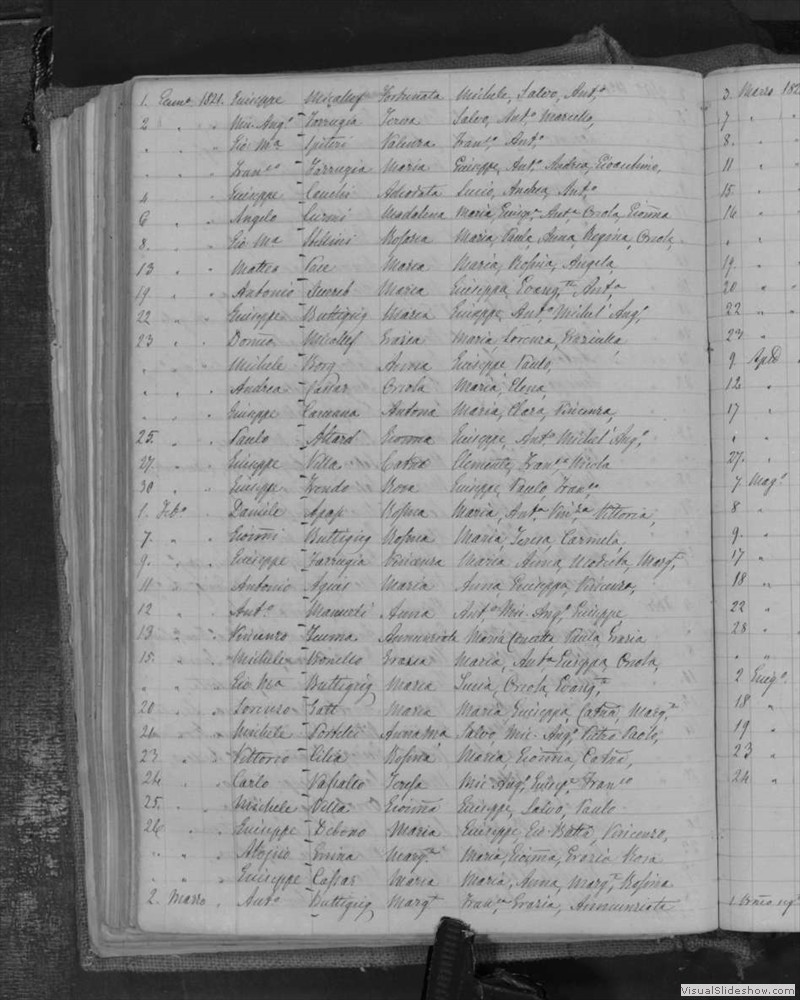 1. Genn° 1821. Giuseppe Micallef Fortunata Michele, Salvo, Ant.°
2 " " Mic-Ang° Farrugia Teresa Salvo, Ant.° Marcello,
" " " Gio Ma Spiteri Valenza Fran.co, Ant.°
" " " Fran.co Farrugia Maria Giuseppe, Ant.° Andrea, Gioachino,
4 " " Giuseppe Conchi Adeodata Lucio, Andrea, Ant.°
6 " " Angelo Maddalena Maria, Giusep.a Ant.a Orsola, Gioanna
8. " " Gio Ma Pollini Rosaria Maria, Paula, Anna, Regina, Orsola,
13 " " Matteo Pace Maria Maria, Rosina, Angela,
19. " " Antonio Sciureb Maria Giuseppa, Evang.ta Ant.a
22 " " Giuseppe Buttigieg Maria Giuseppe, Ant.° Michel' Ang.°
23 " " Domco Micallef Grazia Maria, Lorenza, Graziulla,
" " " Michele Borg Anna Giuseppe, Paulo,
" " " Andrea Vassar Orsola Maria, Elena,
" " " Giuseppe Camana Antonia Maria, Clara, Vincenza,
25. " " Paulo Attard Gioanna Giuseppe, Ant.° Michel' Ang.°
27. " " Giuseppe Villa Catna Clemente, Fran.co Nicola
30 " " Giuseppe Zondo Rosa Giuseppe, Paulo, Fran.co
1. Feb° " Daniele Apap Rosina Maria, Ant.a Vin.za Vittoria,
7. " " Gioanni Buttigieg Rosina Maria, Teresa, Carmela,
9. " " Giuseppe Farrugia Vincenza Maria, Anna, Modesta, Marg.ta
11 " " Antonio Agius Maria Anna, Giuseppa, Vincenza,
12 " " Ant.° Mamerti Anna Ant.° Mic-Ang.° Giuseppe
13 " " Vincenzo Zumma Annunziata Maria Concetta, Paula, Grazia
15. " " Michele Bonello Grazia Maria, Ant.a Giuseppa, Orsola,
" " " Gio Ma Buttigieg Maria Lucia, Orsola, Evang.ta
20 " " Lorenzo Gatt Maria Maria, Giuseppa, Catna, Marg.ta
21 " " Michele Portelli Anna Ma Salvo, Mic-Ang.° Pietro Paolo,
23 " " Vittorio Cilia Rosina Maria, Gioanna, Catna,
24 " " Carlo Vassallo Teresa Mic-Ang.° Giusep.e Fran.co
25. " " Michele Villa Gioanna Giuseppe, Salvo, Paulo
26 " " Giuseppe Debono Maria Giuseppe, Gio Batta, Vincenzo,
" " " Aloysio Marg.ta Maria, Gioanna, Grazia Rosa
" " " Giuseppe Cassar Maria Maria, Anna, Marg.ta, Rosina
2. Marzo " Ant.° Buttigieg Marg.ta Fran.ca, Grazia, Annunziata
3. Marzo 182
7 " "
8. " "
11 " "
15. " "
16 " "
" " "
19. " "
20 " "
22 " "
23 " "
9. Aple
12 "
17 "
" "
27. "
7 Mag.°
8 "
9. "
17 "
18 "
22 "
28 "
" "
2 Giug.°
18 "
19 "
23 "
24 "
VisualSlideshow.com